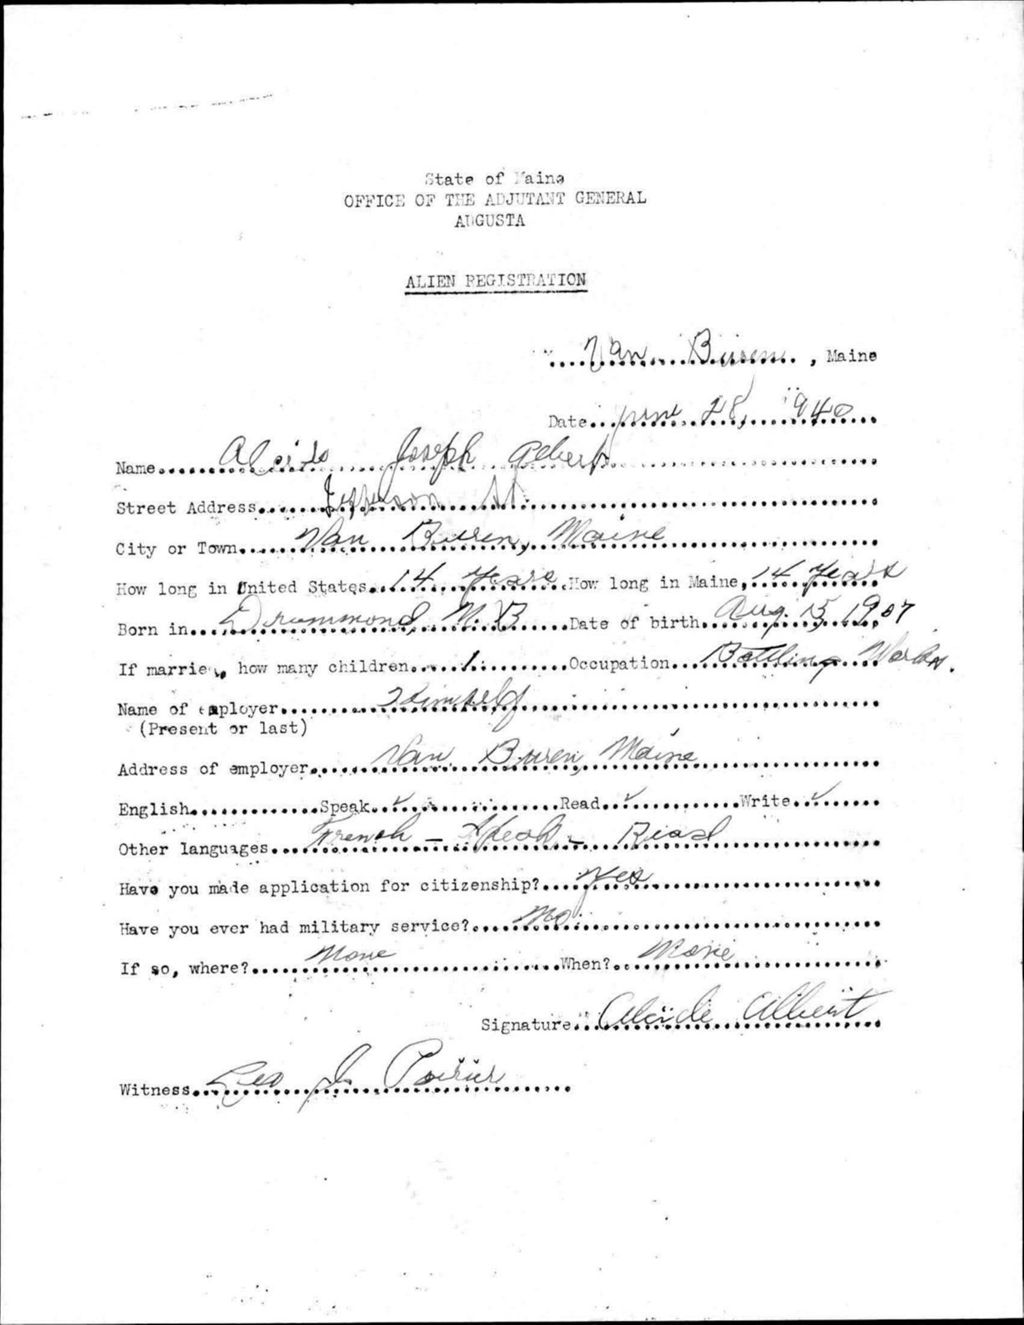 State of Maine
OFFICE OF THE ADJUTANT GENERAL
AUGUSTA
ALIEN REGISTRATION
Van Buren, Maine
Date June 28, 1940
Name Alcide Joseph Albert
Street Address Jefferson St.
City or Town Van Buren, Maine
How long in United States 14 Years How long in Maine, 14 Years
Born in Drummond, N. B Date of birth Aug. 15, 1907
If married, how many children 1 Occupation Bottling Works.
Name of employer Himself
(Present or last)
Address of employer Van Buren, Maine
English Speak ✓ Read ✓ Write ✓
Other languages French - Speak - Read
Have you made application for citizenship? Yes
Have you ever had military service? No
If so, where? None When? None
Signature Alcide Albert
Witness Leo J. Poirier